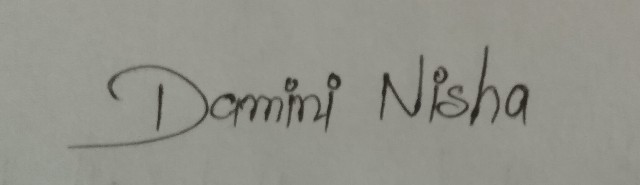 Damini Nisha